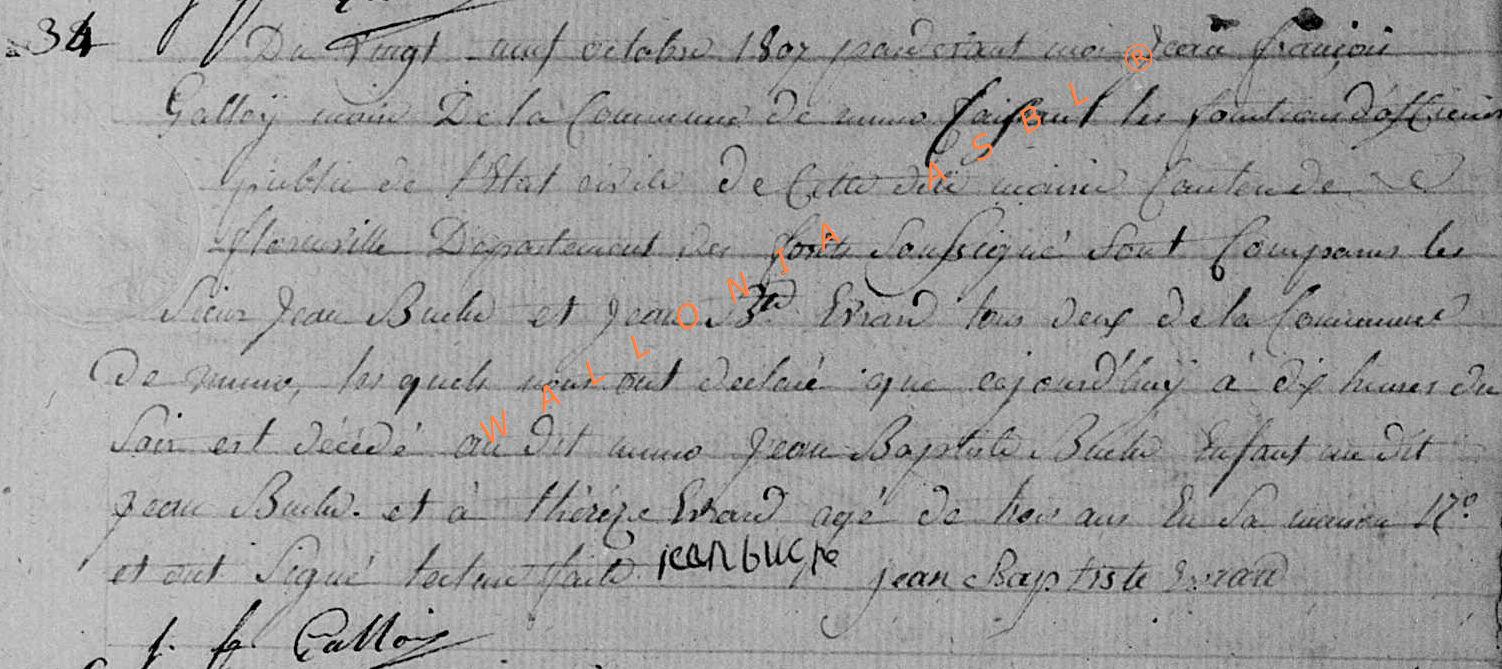 34
Du Vingt neuf octobre 1807 pardevant moi Jean françois
Galloÿ maire De la Commune de muno faisant les fonctions d'officier
public de l'Etat civile de Cette dite mairie Canton de
florenville Departement des forets Soussigné Sont Comparus les
Sieur Jean Buche et Jean Bte Evrard tous deux de la Commune
De muno, les quels nous ont declaré que aujourd'huÿ à dix heures du
Soir est décédé au dit muno Jean Baptiste Buche Enfant au dit
Jean Buche et à thérèze Evrard agé de trois ans En Sa maison N° 17
et ont Signé lecture faite jean buche jean Baptiste Evrard
j. f. Galloiy
WALLONIA ASBL ®